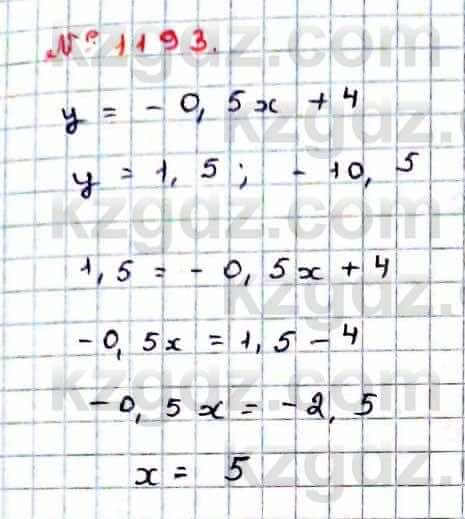 № 1193.
y = - 0, 5x + 4
y = 1, 5 ; - 10, 5
1, 5 = - 0, 5x + 4
-0, 5x = 1, 5 - 4
-0, 5x = -2, 5
x = 5
kzgdz.com
kzgdz.com
kzgdz.com
kzgdz.com
kzgdz.com